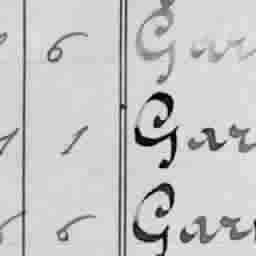 6 Gar
1 1 Gar
6 6 Gar